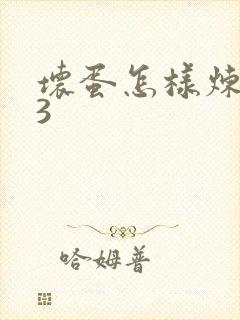 壞蛋怎樣煉
3
哈姆普